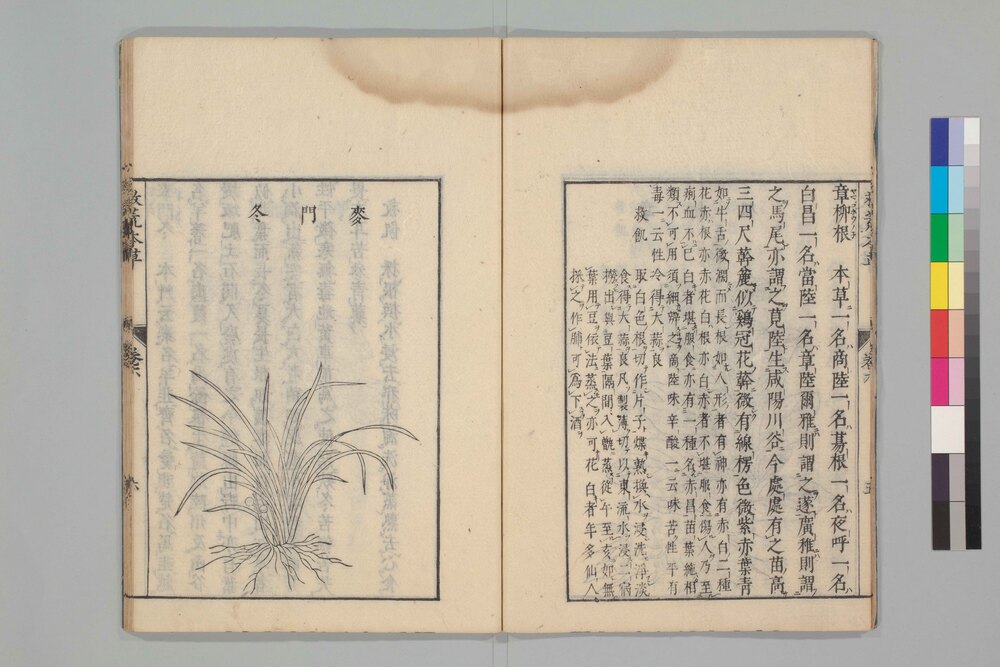 章柳根 本草一名商陸一名䓪根一名夜呼一名
白昌一名當陸一名章陸爾雅則謂之蓫廣雅則謂
之馬尾亦謂之莧陸生咸陽川谷今處處有之苗高
三四尺幹麄似鷄冠花幹微有線楞色微紫赤葉青
如牛舌微濶而長根如人形者有神亦有赤白二種
花赤根亦赤花白根亦白赤者不堪服食傷人乃至
痢血不已白者堪服食亦有一種名赤昌苗葉絶相
類不可用須細辨之商陸味辛酸一云味苦性平有
毒一云性冷得大蒜良
救飢 取白色根切作片子煠熟換水浸洗淨淡
食得大蒜良凡製薄切以東流水浸二宿
撈出與豆葉隔間入甑蒸從午至亥如無
葉用豆依法蒸之亦可花白者年多仙人
採之作脯可爲下酒
卷六
五
麥門冬
救荒本草
卷六
六